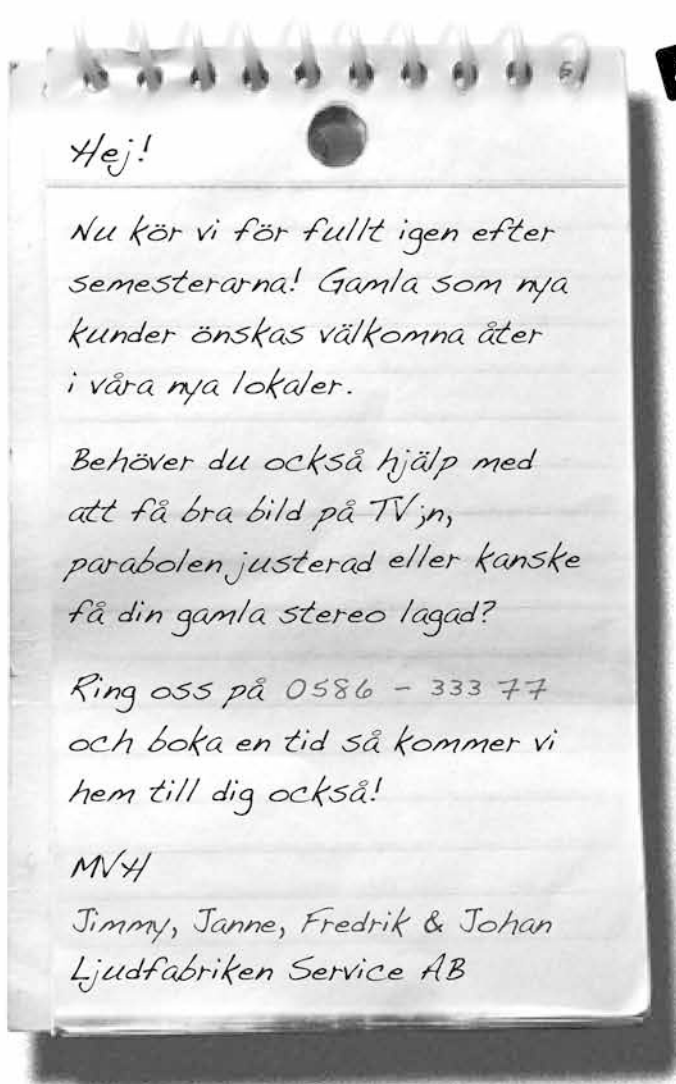 Hej!
Nu kör vi för fullt igen efter
semesterarna! Gamla som nya
kunder önskas välkomna åter
i våra nya lokaler.
Behöver du också hjälp med
att få bra bild på TV;n,
parabolen justerad eller kanske
få din gamla stereo lagad?
Ring oss på 0586 - 333 77
och boka en tid så kommer vi
hem till dig också!
MVH
Jimmy, Janne, Fredrik & Johan
Ljudfabriken Service AB